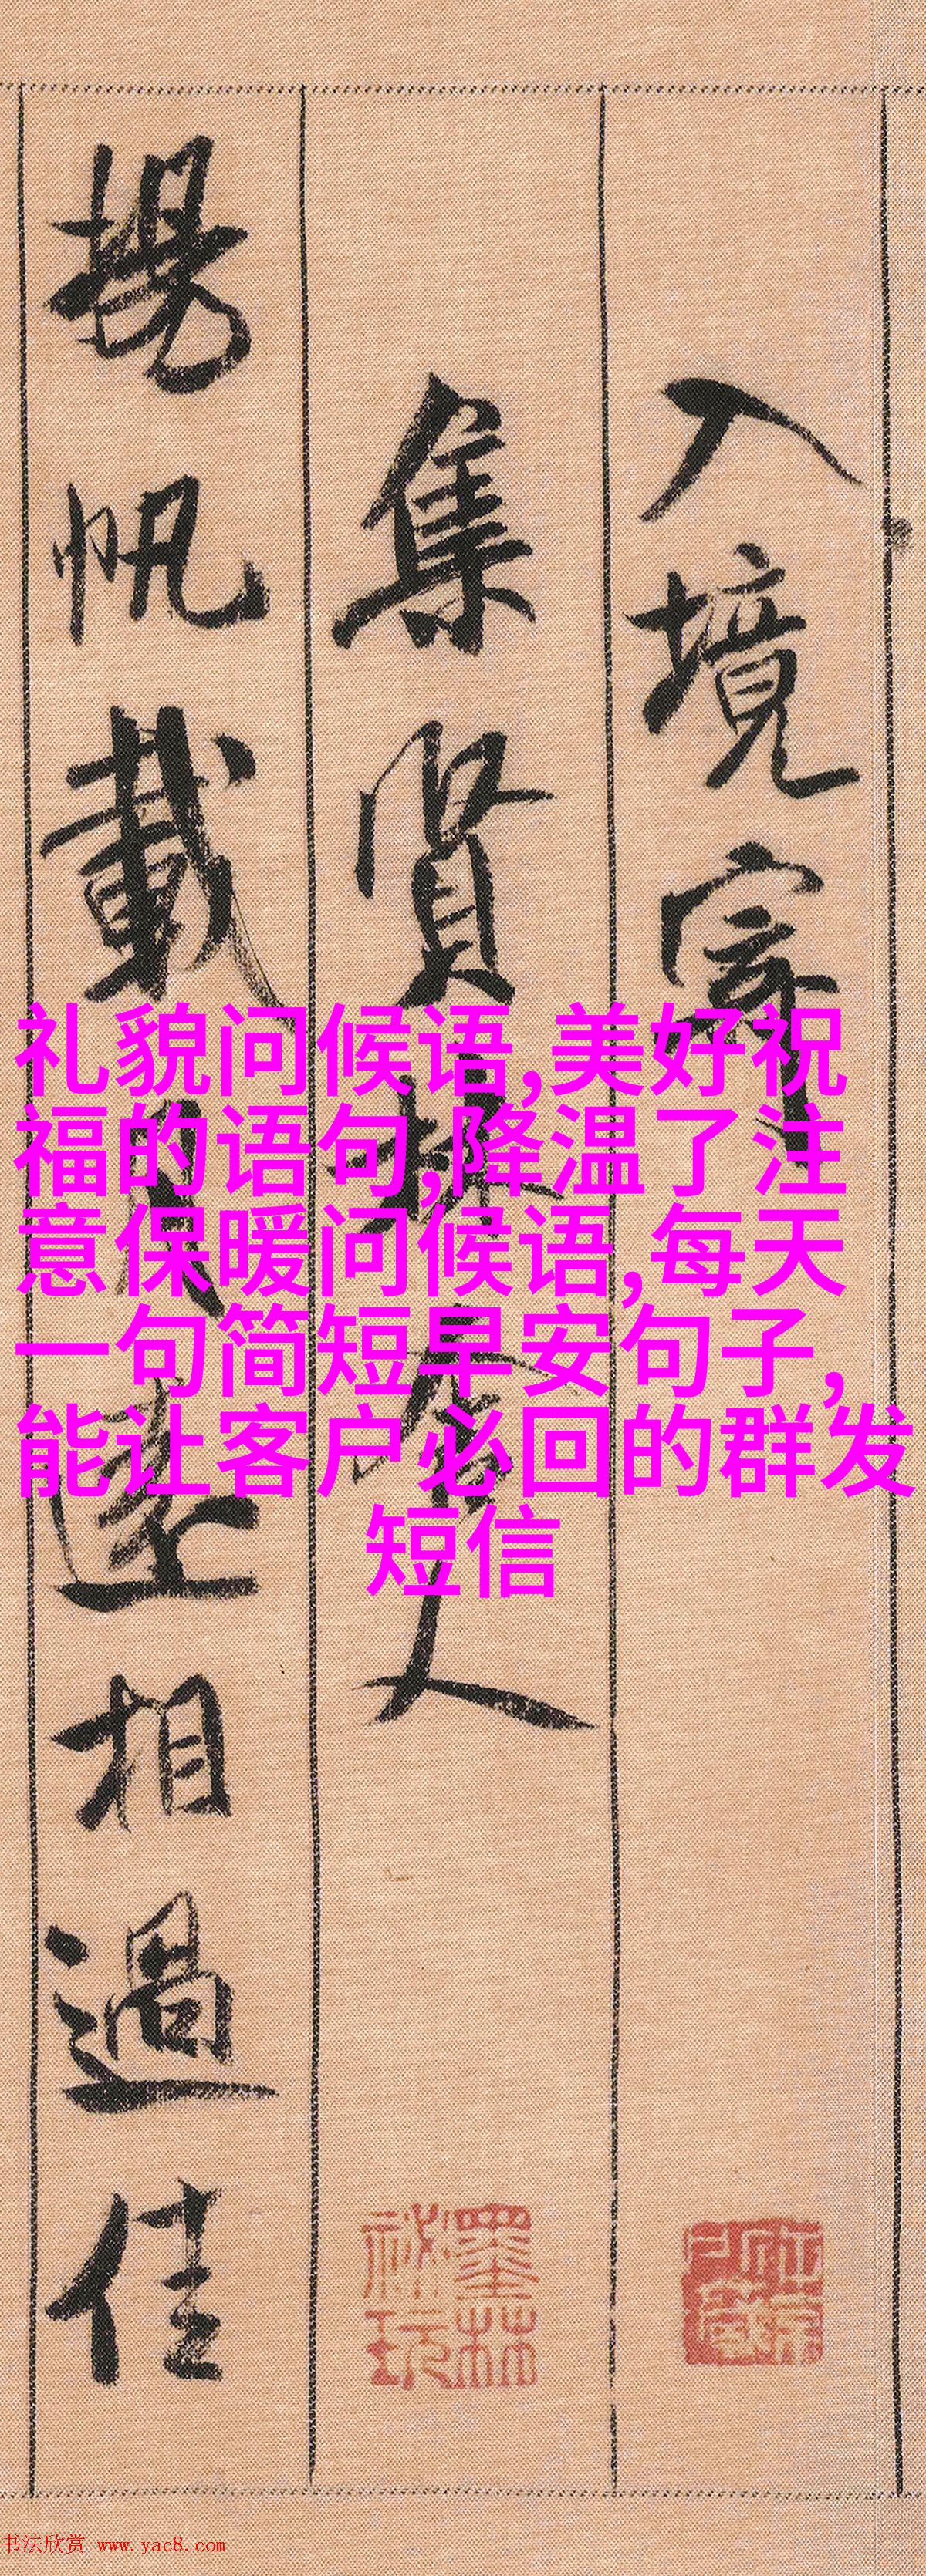 入境寄
集賢林舍人
揚帆載月遠相過佳
礼貌问候语,美好祝
福的语句,降温了注
意保暖问候语,每天
一句简短早安句子,
能让客户必回的群发
短信
墨林
秘玩
书法欣赏 www.yac8.com